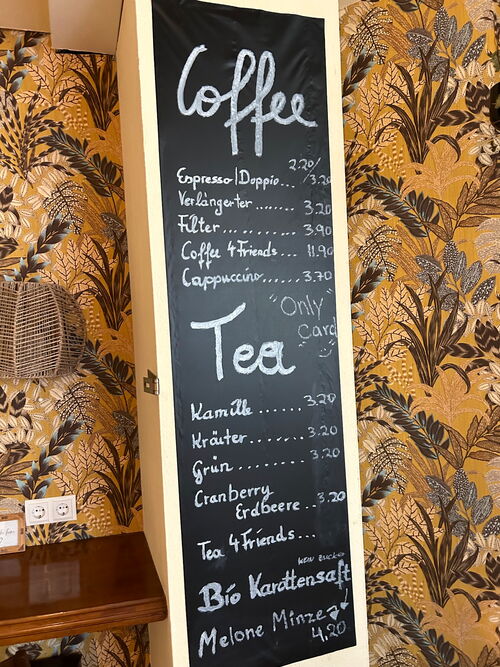 Coffee
2.20/
Espresso/Doppio... 3.20
Verlängerter ....... 3.20
Filter ... .. ...... 3.90
Coffee 4 Friends... 11.90
Cappuccino....... 3.70
"Only
Card"
Tea
Kamille ....... 3.20
Kräuter........ 3.20
Grün......... 3.20
Cranberry
Erdbeere .. 3.20
Tea 4 Friends...
kein zucker
Bio Karottensaft
Melone Minze
4.20